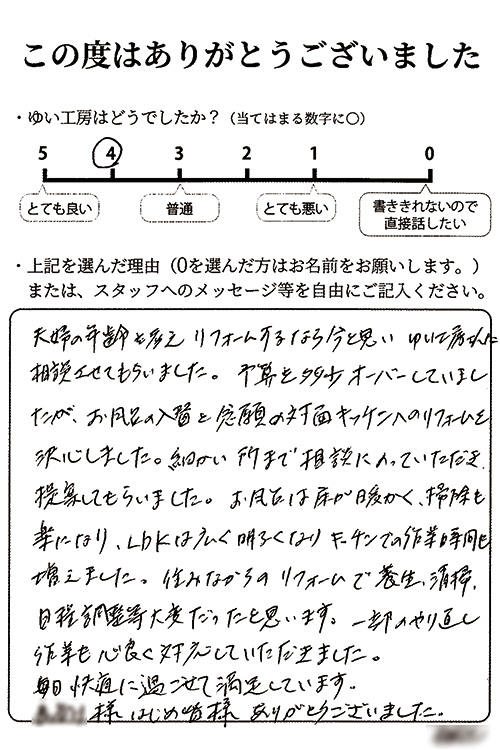 この度はありがとうございました
・ゆい工房はどうでしたか？（当てはまる数字に○）
5 4 3 2 1 0
とても良い 普通 とても悪い 書ききれないので
直接話したい
・上記を選んだ理由（0を選んだ方はお名前をお願いします。）
または、スタッフへのメッセージ等を自由にご記入ください。
夫婦の年齢も考え リフォームするなら今と思い ゆい工房さんに
相談させてもらいました。予算を多少オーバーしていまし
たが、お風呂の入替と念願の対面キッチンへのリフォームを
決心しました。細かい所まで相談にのっていただき
提案してもらいました。お風呂は床が暖かく、掃除も
楽になり、LDKは広く明るくなりキッチンでの作業時間も
増えました。住みながらのリフォームで養生、清掃、
日程調整等大変だったと思います。一部のやり直し
作業も心良く対応していただきました。
毎日快適に過ごせて満足しています。
様はじめ皆様 ありがとうございました。